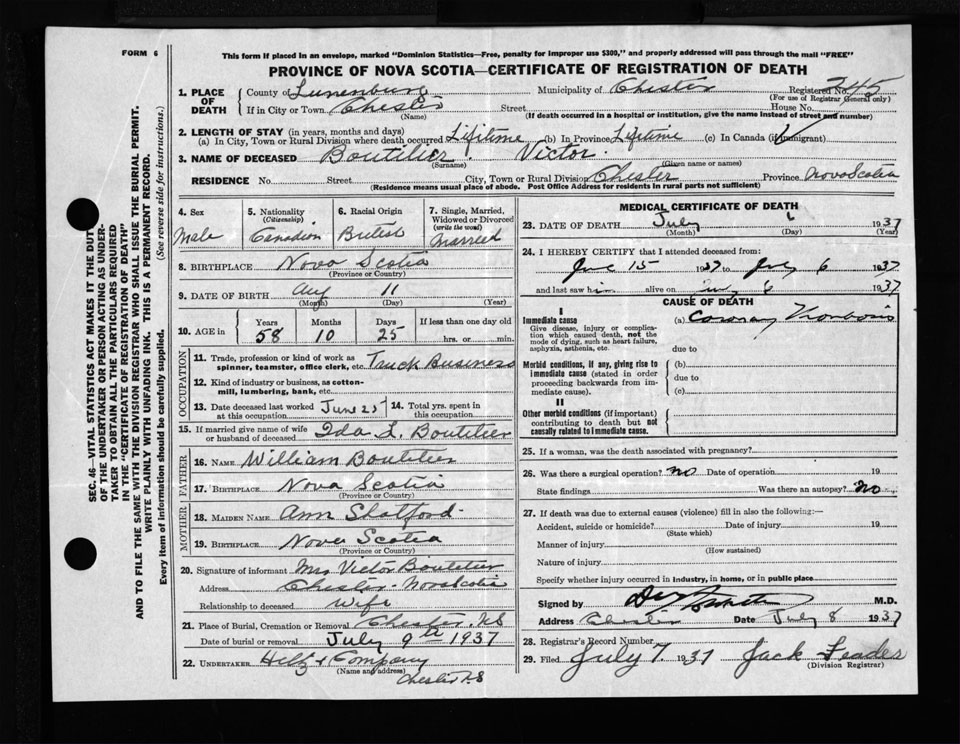 FORM 6
This form if placed in an envelope, marked "Dominion Statistics—Free, penalty for improper use $300," and properly addressed will pass through the mail "FREE"
PROVINCE OF NOVA SCOTIA—CERTIFICATE OF REGISTRATION OF DEATH
1. PLACE OF DEATH County of Lunenburg Municipality of Chester Registered No. 245
(For use of Registrar General only)
If in City or Town Chester Street House No.
(Name) (If death occurred in a hospital or institution, give the name instead of street and number)
2. LENGTH OF STAY (in years, months and days)
(a) In City, Town or Rural Division where death occurred Lifetime (b) In Province Lifetime (c) In Canada (if immigrant)
3. NAME OF DECEASED Boutilier. Victor.
(Surname) (Given name or names)
RESIDENCE No. Street City, Town or Rural Division Chester Province Nova Scotia
(Residence means usual place of abode. Post Office Address for residents in rural parts not sufficient)
4. Sex Male
5. Nationality (Citizenship) Canadian
6. Racial Origin British
7. Single, Married, Widowed or Divorced (write the word) Married
8. BIRTHPLACE Nova Scotia
(Province or Country)
9. DATE OF BIRTH Aug 11
(Month) (Day) (Year)
10. AGE in Years Months Days If less than one day old
58 10 25 hrs. or min.
OCCUPATION
11. Trade, profession or kind of work as spinner, teamster, office clerk, etc. Truck Business
12. Kind of industry or business, as cotton-mill, lumbering, bank, etc.
13. Date deceased last worked at this occupation June 25
14. Total yrs. spent in this occupation
15. If married give name of wife or husband of deceased Ida L. Boutilier
FATHER
16. NAME William Boutilier
17. BIRTHPLACE Nova Scotia
(Province or Country)
MOTHER
18. MAIDEN NAME Ann Slatford
19. BIRTHPLACE Nova Scotia
(Province or Country)
20. Signature of informant Mrs Victor Boutilier
Address Chester Nova Scotia
Relationship to deceased Wife
21. Place of Burial, Cremation or Removal Chester NS
Date of burial or removal July 9th 1937
22. UNDERTAKER Hiltz & Company
(Name and address) Chester N.S
MEDICAL CERTIFICATE OF DEATH
23. DATE OF DEATH July 6 1937
(Month) (Day) (Year)
24. I HEREBY CERTIFY that I attended deceased from:
June 15 1937 to July 6 1937
and last saw him alive on July 6 1937
CAUSE OF DEATH
I
Immediate cause (a) Coronary Thrombosis
Give disease, injury or complication which caused death, not the mode of dying, such as heart failure, asphyxia, asthenia, etc.
due to
Morbid conditions, if any, giving rise to immediate cause (stated in order proceeding backwards from immediate cause).
(b)
due to
(c)
II
Other morbid conditions (if important) contributing to death but not causally related to immediate cause.
25. If a woman, was the death associated with pregnancy?
26. Was there a surgical operation? no Date of operation 19
State findings Was there an autopsy? no
27. If death was due to external causes (violence) fill in also the following:—
Accident, suicide or homicide? Date of injury 19
(State which)
Manner of injury
(How sustained)
Nature of injury
Specify whether injury occurred in industry, in home, or in public place
Signed by M.D.
Address Chester Date July 8 1937
28. Registrar's Record Number
29. Filed July 7. 1937 Jack Feader
(Division Registrar)
SEC. 46—VITAL STATISTICS ACT MAKES IT THE DUTY
OF THE UNDERTAKER OR PERSON ACTING AS UNDER-
TAKER TO OBTAIN ALL THE PARTICULARS REQUIRED
IN THE "CERTIFICATE OF REGISTRATION OF DEATH"
AND TO FILE THE SAME WITH THE DIVISION REGISTRAR WHO SHALL ISSUE THE BURIAL PERMIT.
WRITE PLAINLY WITH UNFADING INK. THIS IS A PERMANENT RECORD.
Every item of information should be carefully supplied. (See reverse side for instructions.)